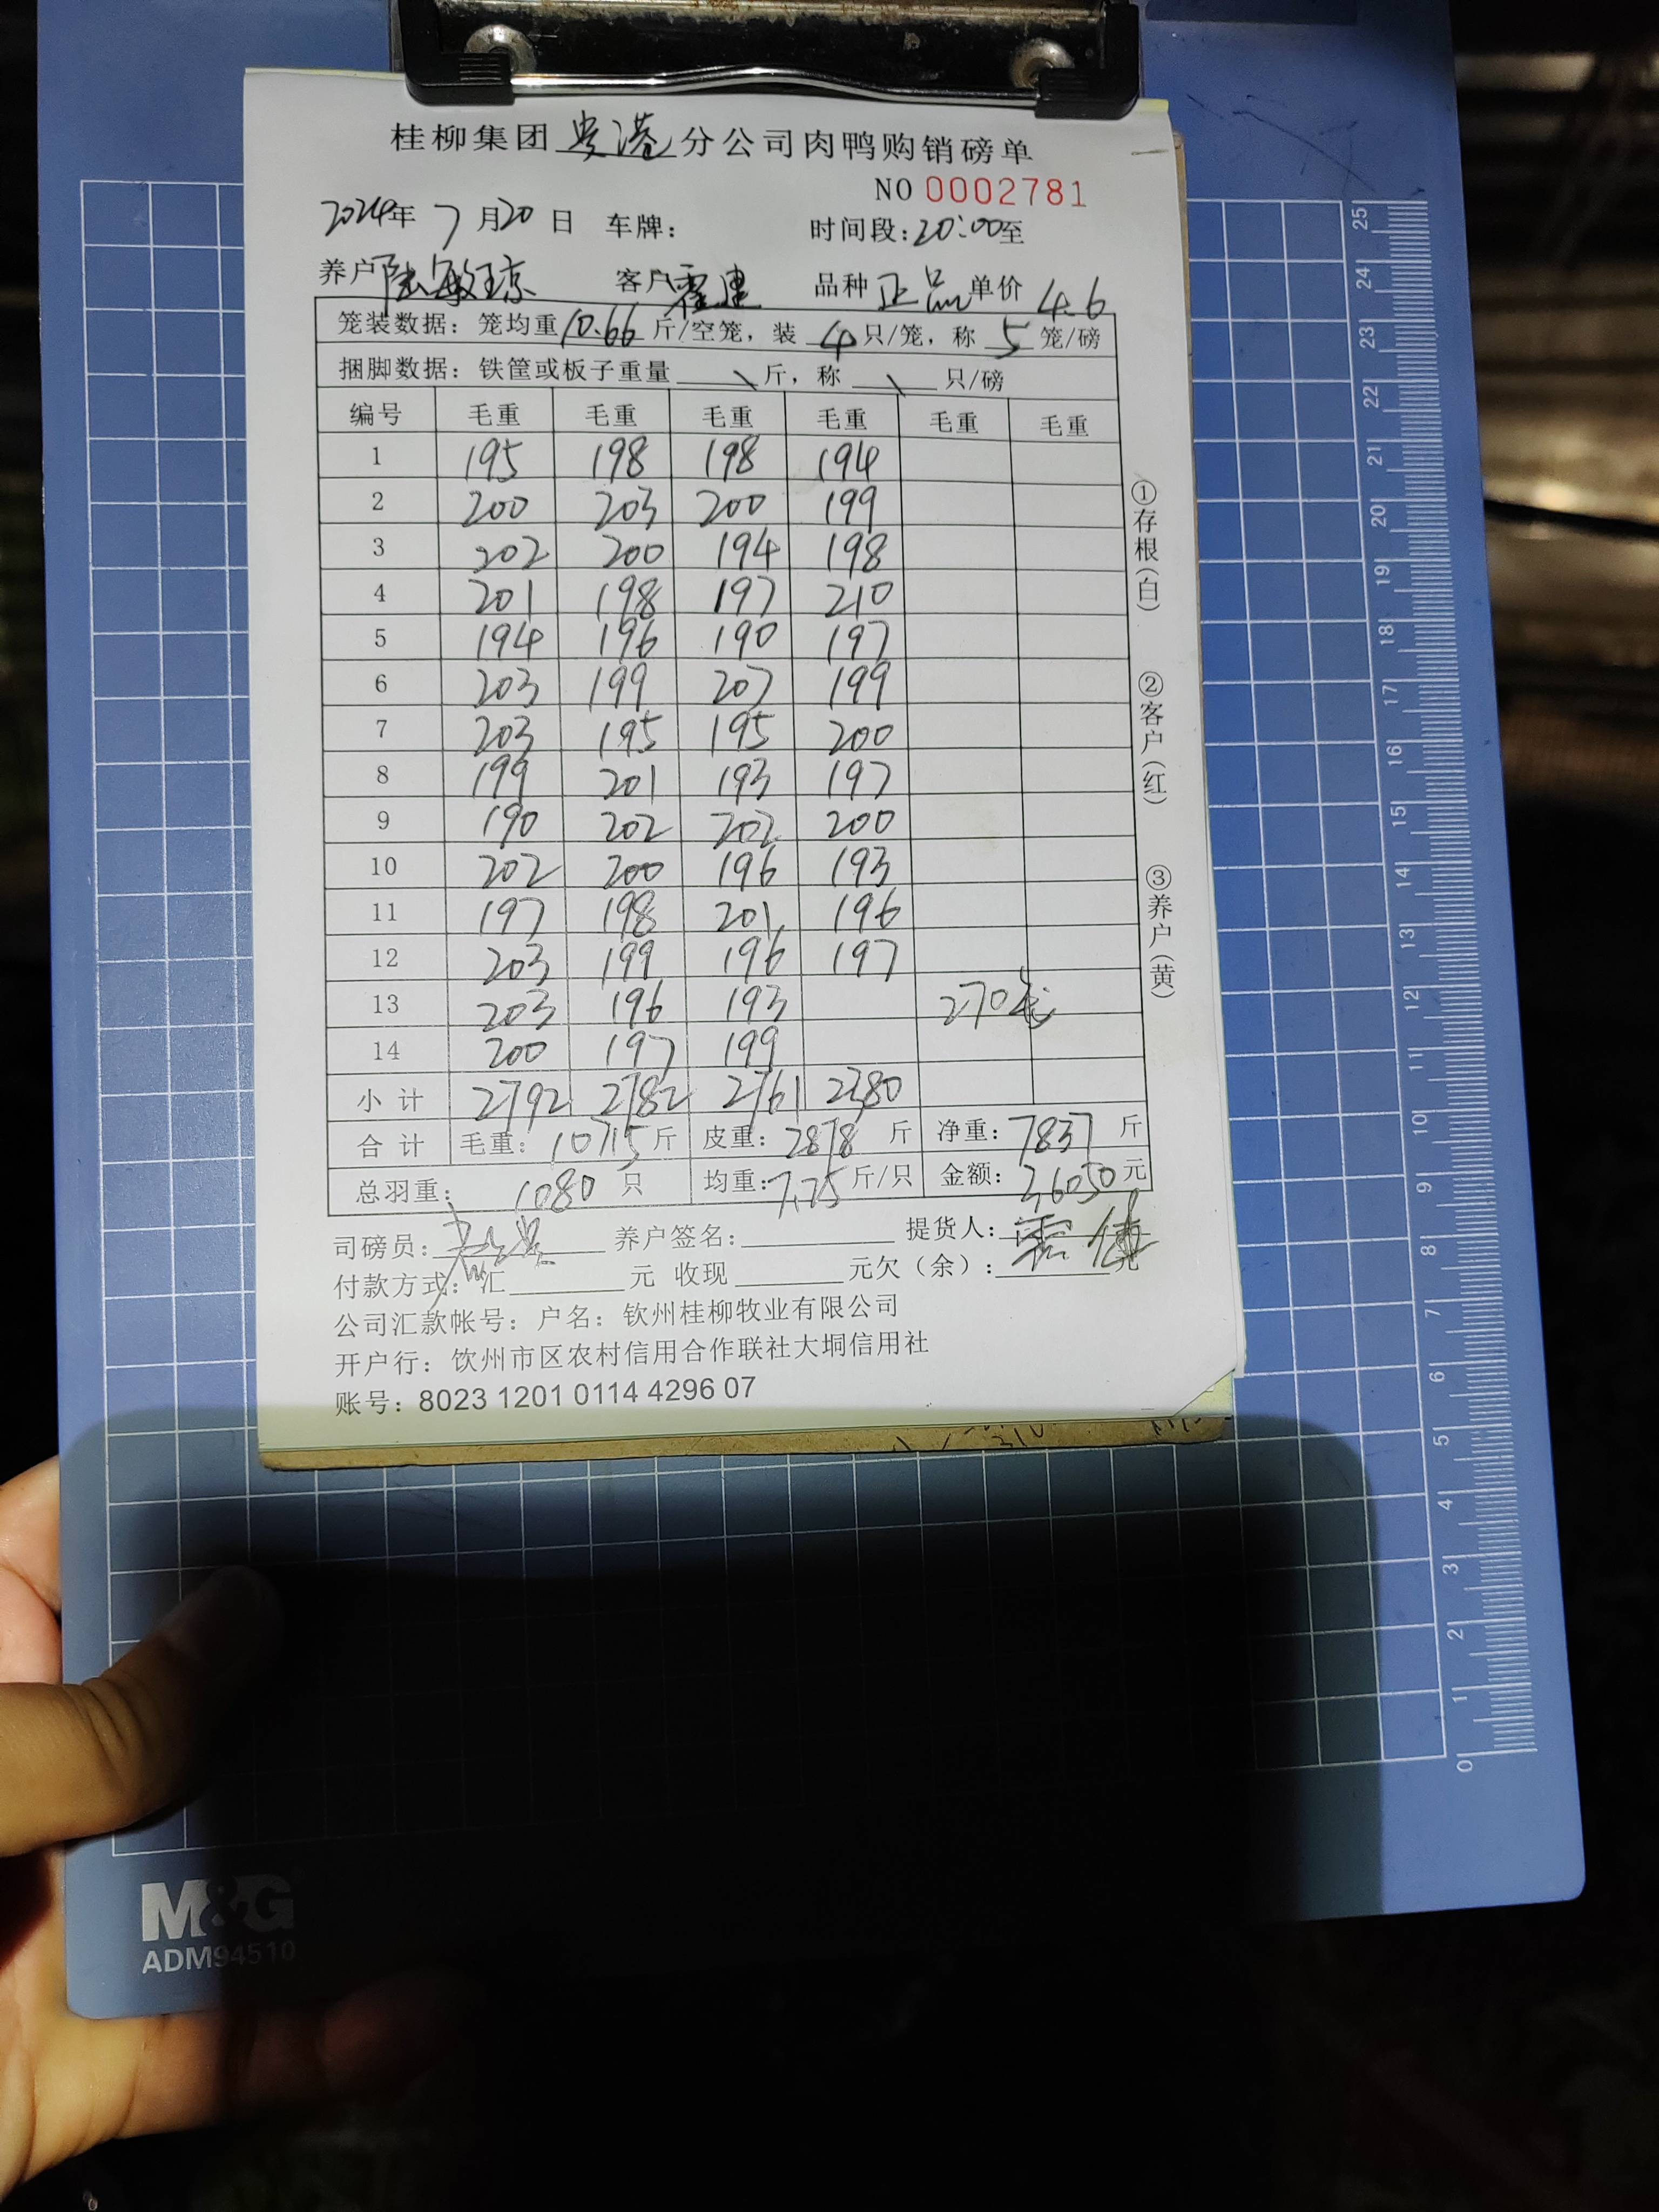 桂柳集团贵港分公司肉鸭购销磅单
NO 0002781
2024年 7月20日 车牌: 时间段:20:00至
养户陆敏琼 客户霍建 品种正品单价4.6
笼装数据:笼均重10.66斤/空笼,装4只/笼,称5笼/磅
捆脚数据:铁筐或板子重量\斤,称\只/磅
编号 毛重 毛重 毛重 毛重 毛重 毛重
1 195 198 198 194
2 200 203 200 199
3 202 200 194 198
4 201 198 197 210
5 194 196 190 197
6 203 199 207 199
7 203 195 195 200
8 199 201 193 197
9 190 202 202 200
10 202 200 196 193
11 197 198 201 196
12 203 199 196 197
13 203 196 193 270笼
14 200 197 199
小计 2792 2782 2761 2380
合计 毛重:10715斤 皮重:2878斤 净重:7837斤
总羽重:1080只 均重:7.25斤/只 金额:36050元
司磅员: 养户签名: 提货人:
付款方式:汇 元 收现 元欠(余): 元
公司汇款帐号:户名:钦州桂柳牧业有限公司
开户行:饮州市区农村信用合作联社大垌信用社
账号:8023 1201 0114 4296 07
①存根(白) ②客户(红) ③养户(黄)
25
24
23
22
21
20
19
18
17
16
15
14
13
12
11
10
9
8
7
6
5
4
3
2
1
0
M&G
ADM94510